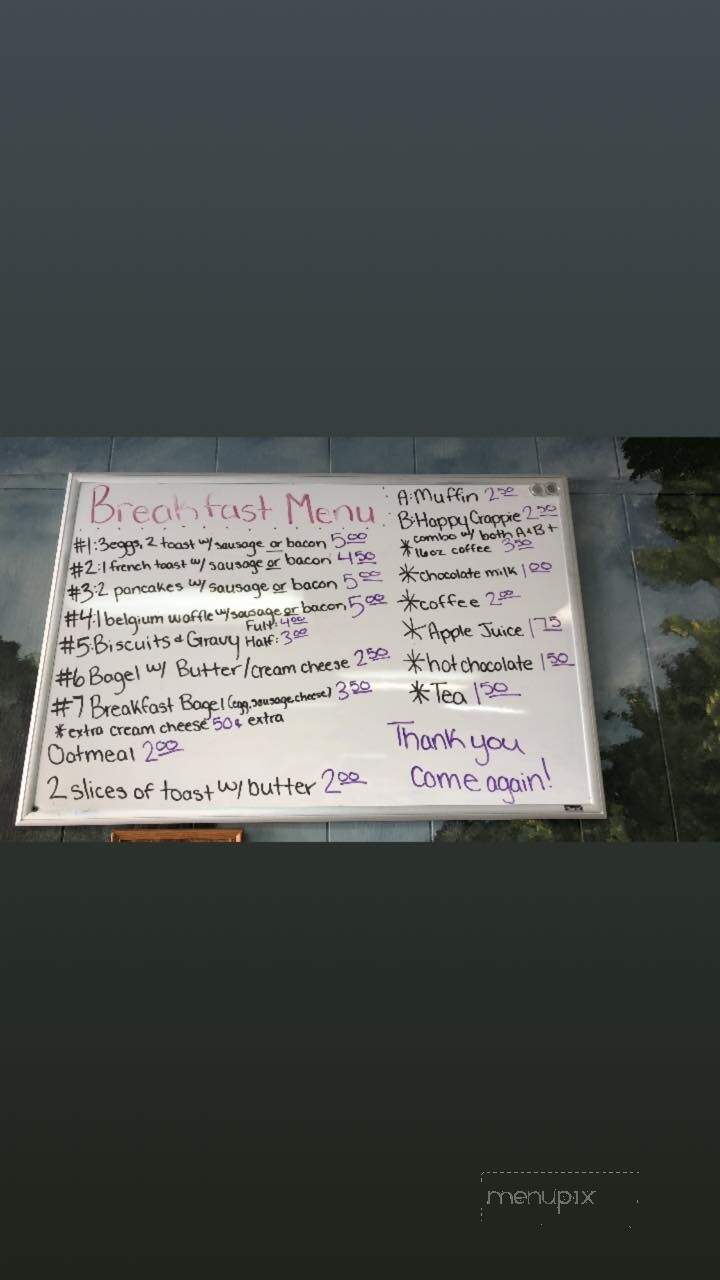 Breakfast Menu
#1:3eggs, 2 toast w/ sausage or bacon 5.00
#2:1 french toast w/ sausage or bacon 4.50
#3:2 pancakes w/ sausage or bacon 5.00
#4:1 belgium waffle w/sausage or bacon 5.00
#5:Biscuits & Gravy Full: 4.00
Half: 3.00
#6 Bagel w/ Butter/cream cheese 2.50
#7 Breakfast Bagel (egg, sausage, cheese) 3.50
*extra cream cheese 50¢ extra
Oatmeal 2.00
2 slices of toast w/ butter 2.00
A:Muffin 2.00
B:Happy Crappie 2.50
* combo w/ both A+B+
16oz coffee 3.50
*chocolate milk 1.00
*coffee 2.00
*Apple Juice 1.75
*hot chocolate 1.50
*Tea 1.50
Thank you
come again!
menupix